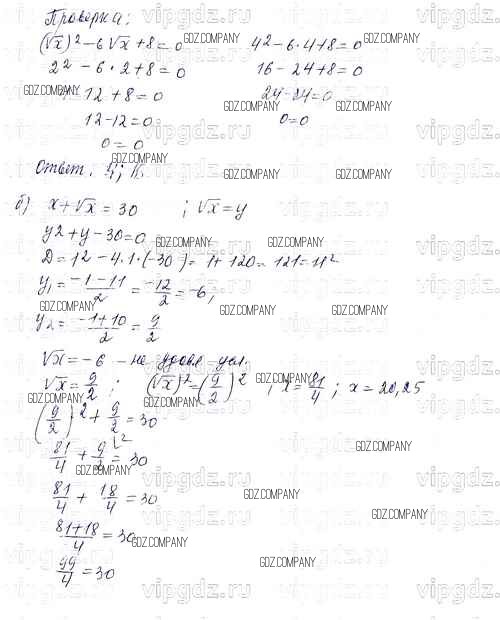 Проверка:
(√x)² - 6√x + 8 = 0    4² - 6·4 + 8 = 0
2² - 6·2 + 8 = 0    16 - 24 + 8 = 0
12 + 8 = 0    24 - 24 = 0
12 - 12 = 0    0 = 0
0 = 0
Ответ. 4;
б) x + √x = 30 ; √x = y
y2 + y - 30 = 0
D = 1² - 4·1·(-30) = 1 + 120 = 121 = 11²
y₁ = (-1-11)/2 = -12/2 = -6;
y₂ = (-1+10)/2 = 9/2
√x = -6 - не удовл. усл.
√x = 9/2 ; (√x)² = (9/2)² ; x = 81/4 ; x = 20,25
(9/2)² + 9/2 = 30
81/4 + 9/2 = 30
81/4 + 18/4 = 30
(81+18)/4 = 30
99/4 = 30
GDZ.COMPANY
vipgdz.ru